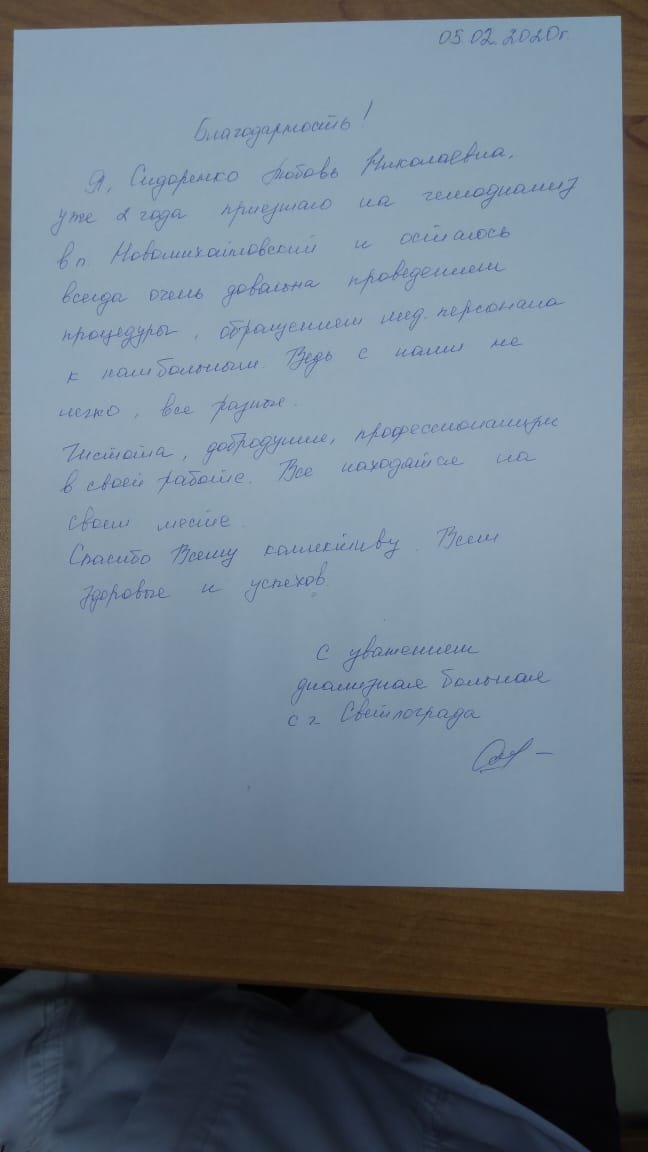 05.02.2020г.
Благодарность!
Я, Сидоренко Любовь Николаевна,
уже 2 года приезжаю на гемодиализ
в п. Новомихайловский и остаюсь
всегда очень довальна проведением
процедуры, обращением мед. персонала
к нам больным. Ведь с нами не
легко, все разные.
Чистота, добродушие, профессионализм
в своей работе. Все находятся на
своем месте.
Спасибо Всему коллективу. Всем
здоровье и успехов.
С уважением
диализная больная
с г. Светлограда